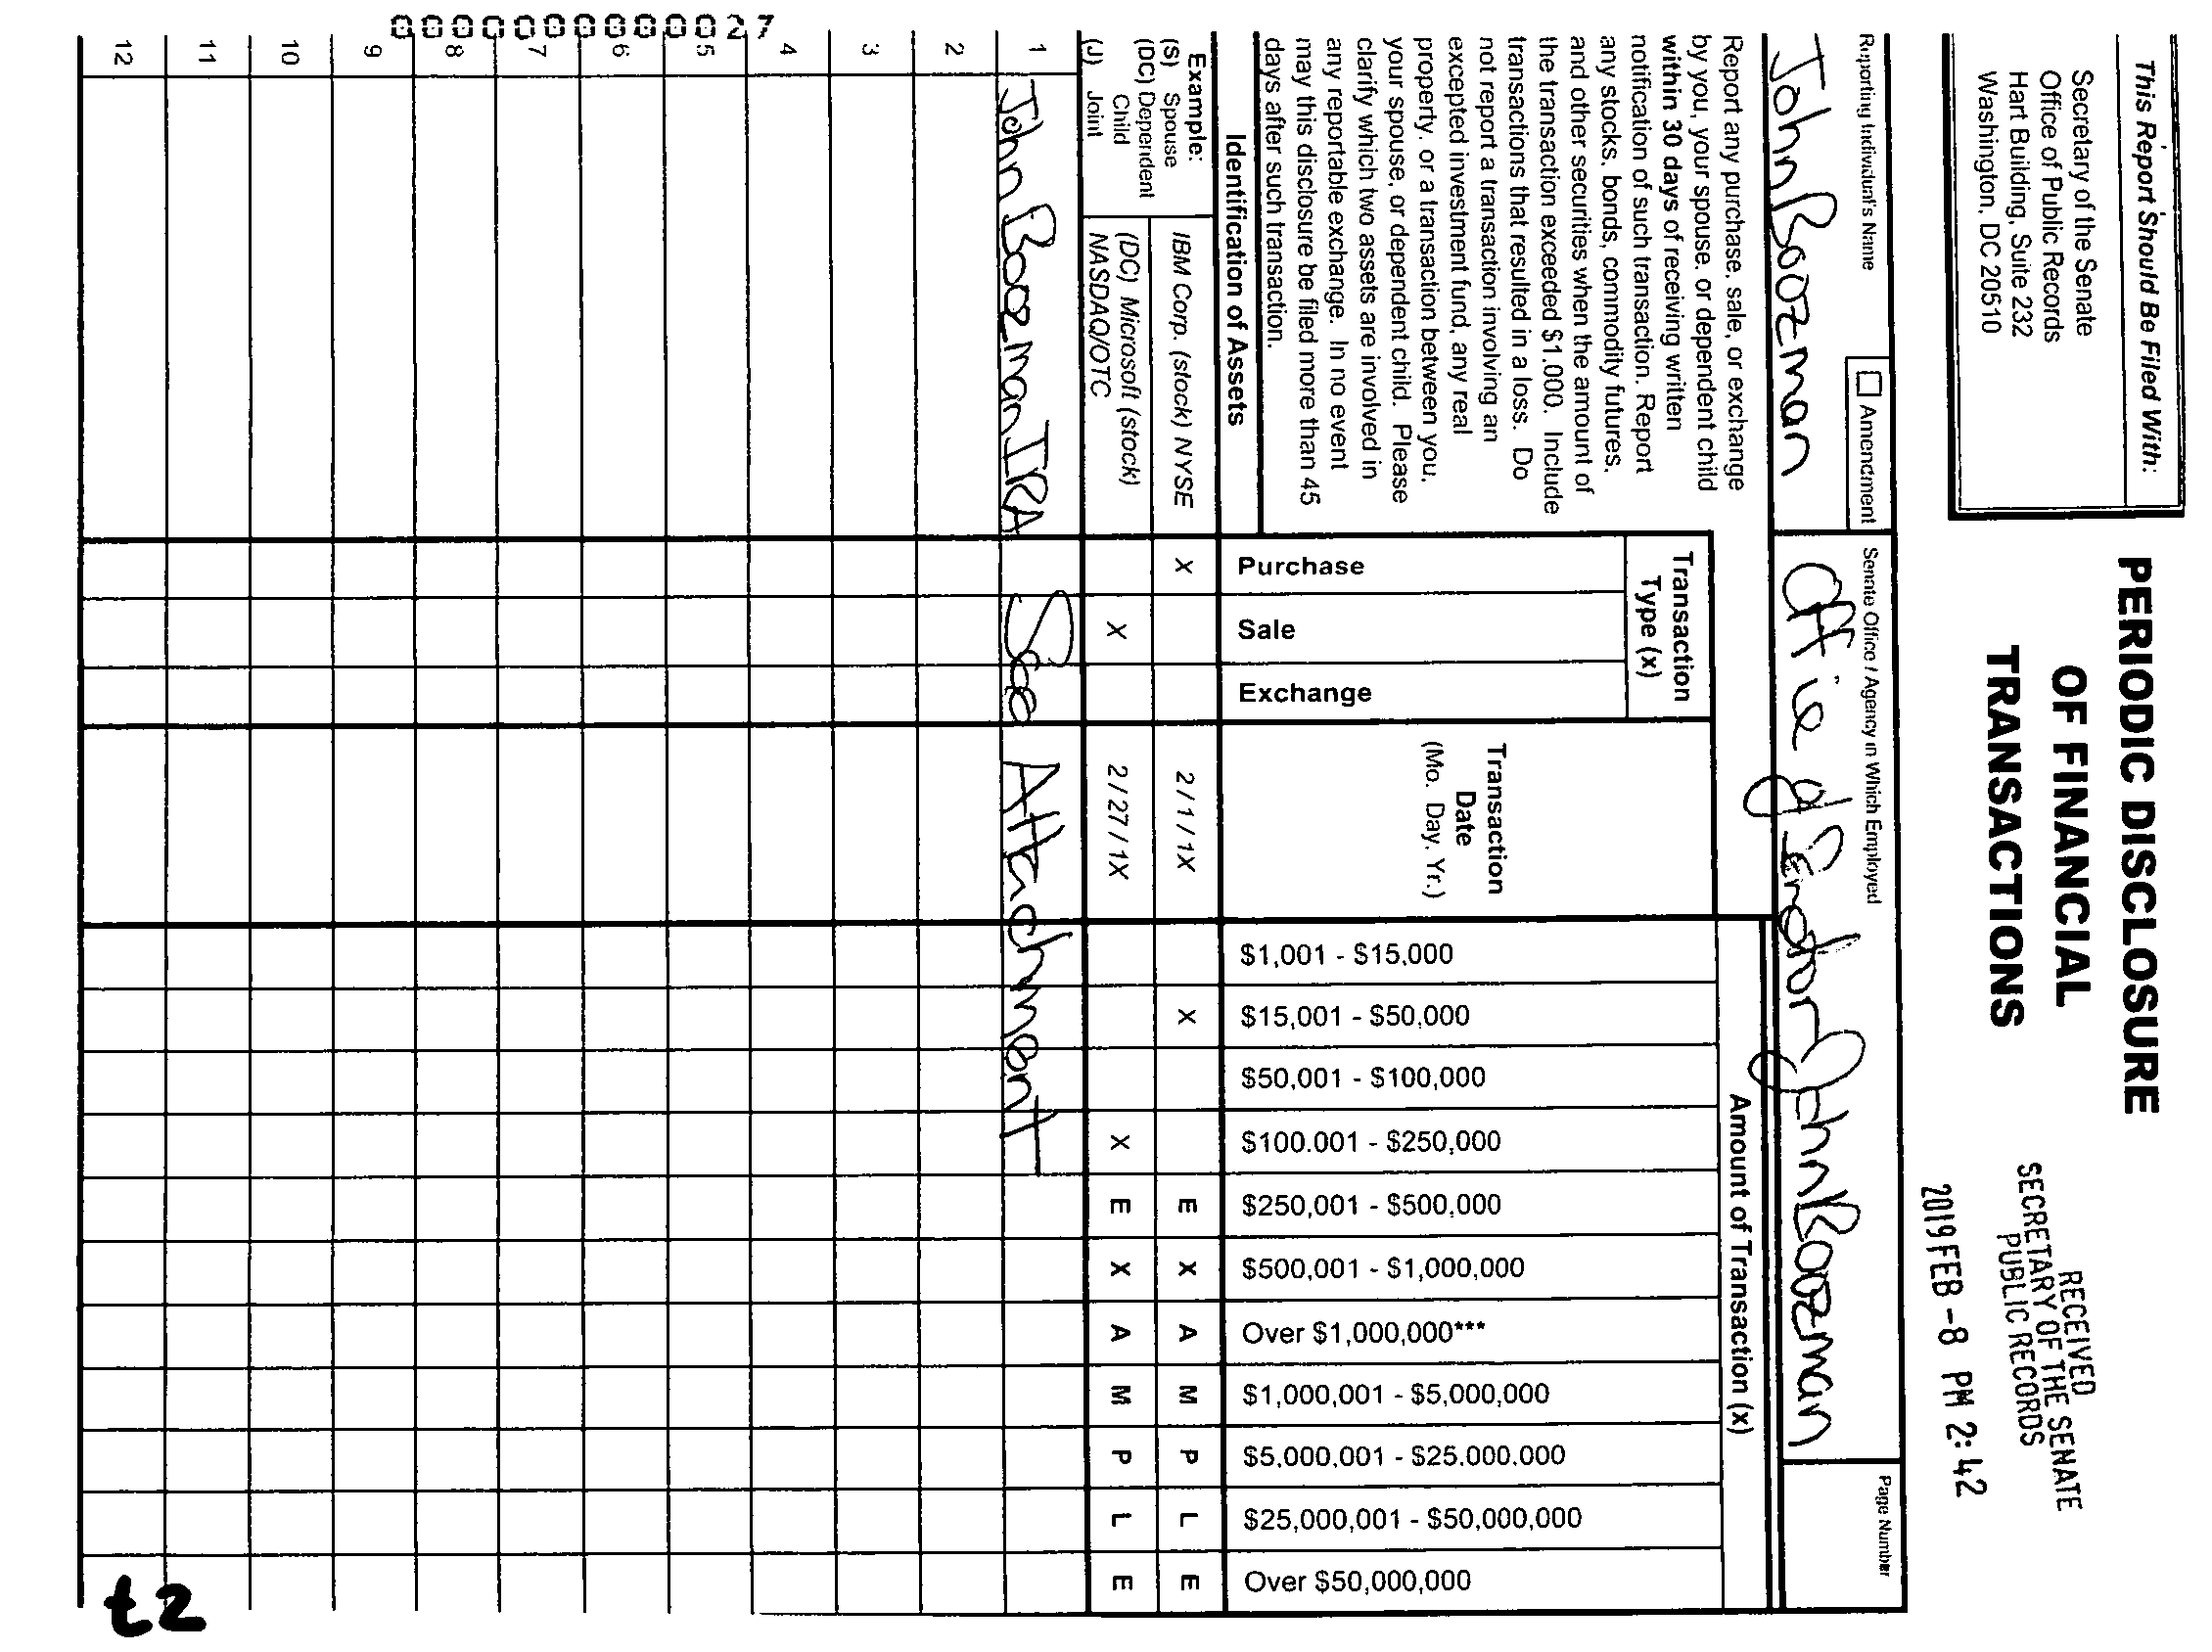 This Report Should Be Filed With:
Secretary of the Senate
Office of Public Records
Hart Building, Suite 232
Washington, DC 20510
PERIODIC DISCLOSURE
OF FINANCIAL
TRANSACTIONS
RECEIVED
SECRETARY OF THE SENATE
PUBLIC RECORDS
2019 FEB -8 PM 2:42
Reporting Individual's Name
John Boozman
☐ Amendment
Senate Office / Agency in Which Employed
Office of Senator John Boozman
Page Number
Report any purchase, sale, or exchange
by you, your spouse, or dependent child
within 30 days of receiving written
notification of such transaction. Report
any stocks, bonds, commodity futures,
and other securities when the amount of
the transaction exceeded $1,000. Include
transactions that resulted in a loss. Do
not report a transaction involving an
excepted investment fund, any real
property, or a transaction between you,
your spouse, or dependent child. Please
clarify which two assets are involved in
any reportable exchange. In no event
may this disclosure be filed more than 45
days after such transaction.
Identification of Assets
Transaction
Type (x)
Purchase
Sale
Exchange
Transaction
Date
(Mo. Day. Yr.)
Amount of Transaction (x)
$1,001 - $15,000
$15,001 - $50,000
$50,001 - $100,000
$100.001 - $250,000
$250,001 - $500,000
$500,001 - $1,000,000
Over $1,000,000***
$1,000,001 - $5,000,000
$5,000,001 - $25.000.000
$25,000,001 - $50,000,000
Over $50,000,000
Example:
(S) Spouse
(DC) Dependent
Child
(J) Joint
IBM Corp. (stock) NYSE X 2/1/1X X E X A M P L E
(DC) Microsoft (stock)
NASDAQ/OTC X 2/27/1X X E X A M P L E
1 John Boozman IRA See Attachment
2
3
4
5
6
7
8
9
10
11
12
000000000027